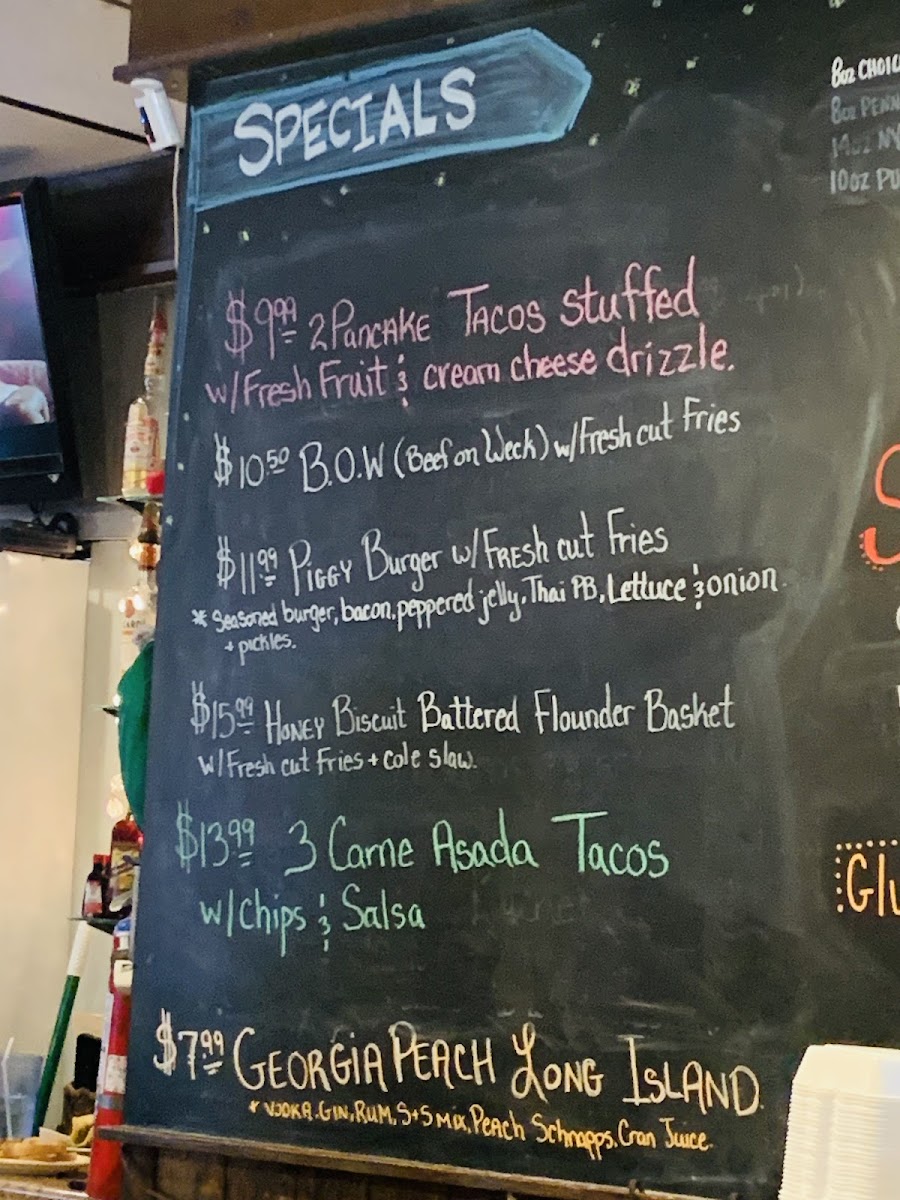 SPECIALS
$9.99 2 PANCAKE TACOS stuffed
w/Fresh Fruit & cream cheese drizzle.
$10.50 B.O.W (Beef on Weck) w/Fresh cut Fries
$11.99 PIGGY Burger w/FRESH cut Fries
* Seasoned burger, bacon, peppered jelly, Thai PB, Lettuce & onion
+ pickles.
$15.99 HONEY Biscuit Battered Flounder Basket
w/Fresh cut Fries + cole slaw.
$13.99 3 Carne Asada Tacos
w/chips & Salsa
$7.99 GEORGIA PEACH LONG ISLAND
* VODKA, GIN, RUM, S+S MIX, PEACH Schnapps, Cran Juice.
8oz CHOIC
8oz PENN
14oz NY
10oz PU
S
Glu